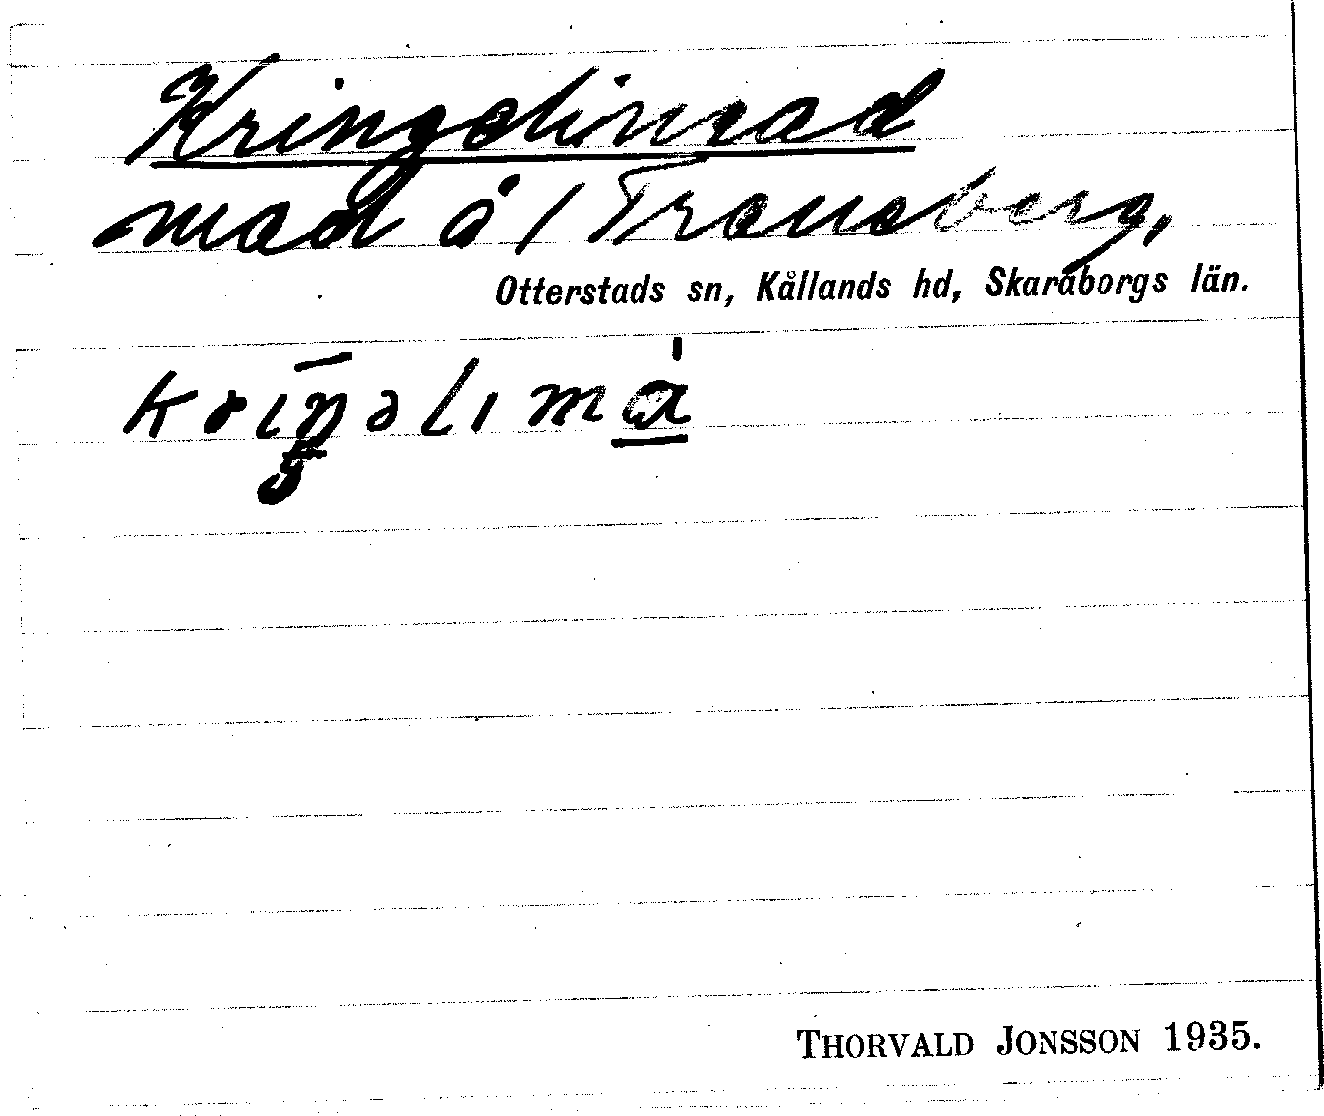 Kringelimad
mad å 1 Traneberg,
Otterstads sn, Kållands hd, Skaraborgs län.
THORVALD JONSSON 1935.